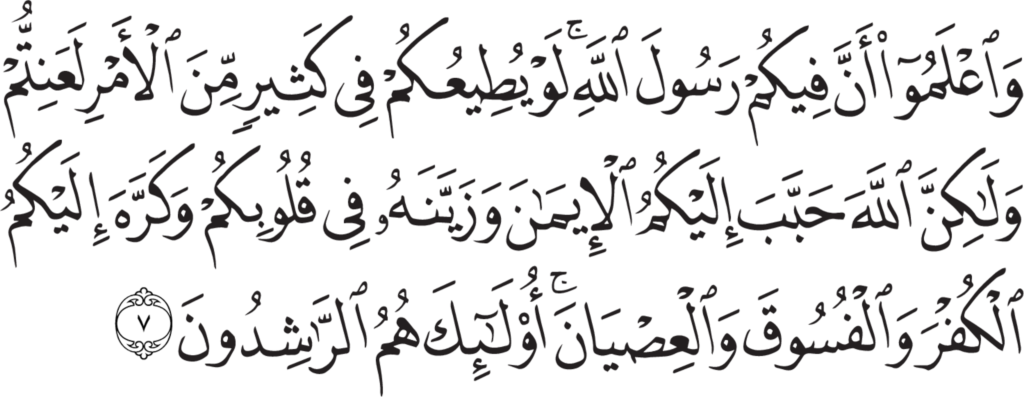 وَٱعْلَمُوٓا۟ أَنَّ فِيكُمْ رَسُولَ ٱللَّهِ ۚ لَوْ يُطِيعُكُمْ فِى كَثِيرٍ مِّنَ ٱلْأَمْرِ لَعَنِتُّمْ
وَلَـٰكِنَّ ٱللَّهَ حَبَّبَ إِلَيْكُمُ ٱلْإِيمَـٰنَ وَزَيَّنَهُۥ فِى قُلُوبِكُمْ وَكَرَّهَ إِلَيْكُمُ
ٱلْكُفْرَ وَٱلْفُسُوقَ وَٱلْعِصْيَانَ ۚ أُو۟لَـٰٓئِكَ هُمُ ٱلرَّٰشِدُونَ ٧